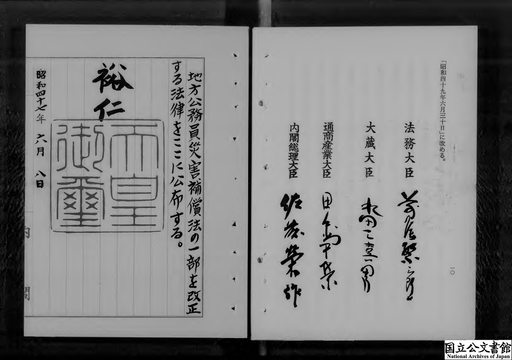 「昭和四十九年六月三十日」に改める。
法務大臣
大蔵大臣 水田三喜男
通商産業大臣 田中角栄
内閣総理大臣 佐藤榮作
一〇
地方公務員災害補償法の一部を改正
する法律をここに公布する。
裕仁
天皇
御璽
昭和四十七年 六月 八日
国立公文書館
National Archives of Japan